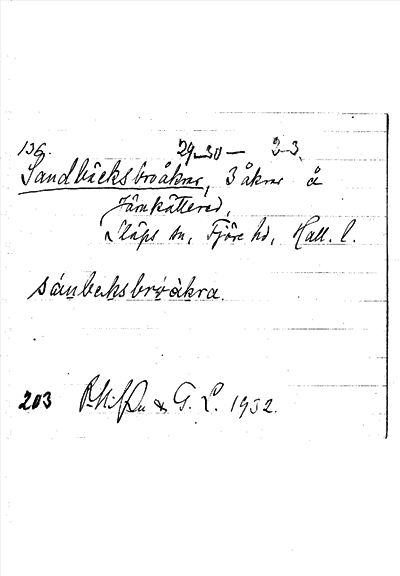 136. 29-30 — 2-3.
Sandbäcksbroåkrar, 3 åkrar å
Järnkätterad,
Släps sn, Fjäre hd, Hall. l.
sánbeksbròàkra.
203 & G. L. 1932.